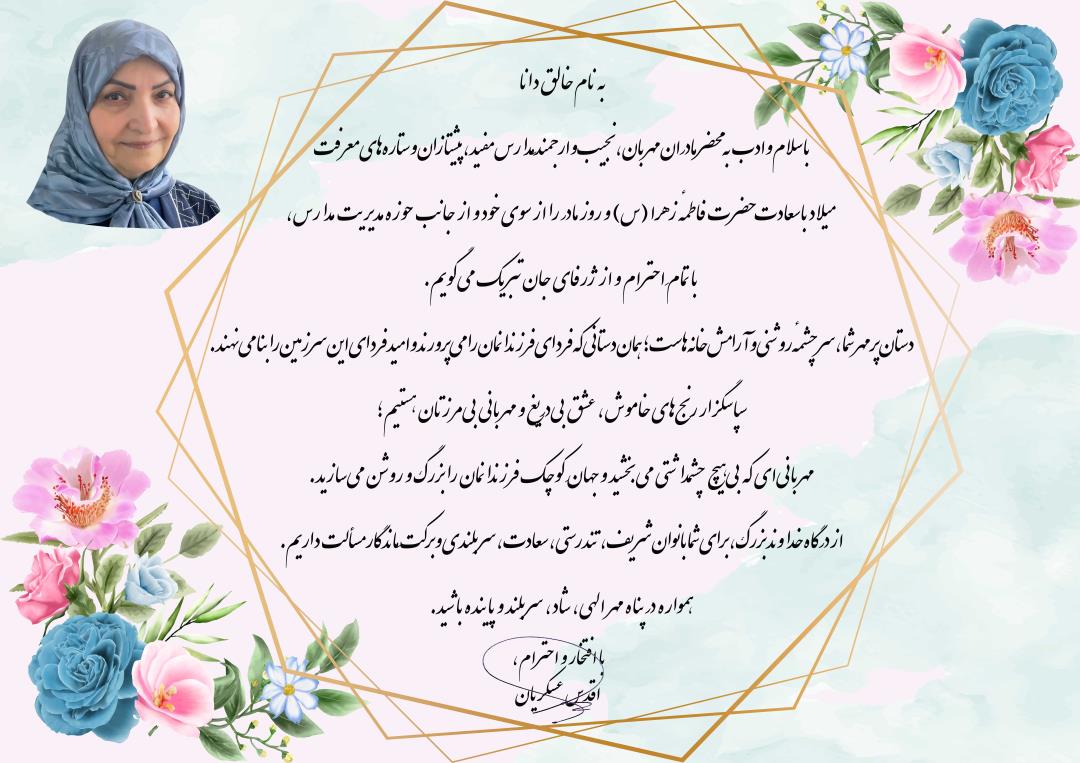 به نام خالق دانا
باسلام و ادب به محضر مادران مهربان، نجیب و ارجمند مدارس مفید، پیشتازان و ستاره های معرفت
میلاد باسعادت حضرت فاطمهٔ زهرا (س) و روز مادر را از سوی خود و از جانب حوزه مدیریت مدارس،
با تمام احترام و از ژرفای جان تبریک می گویم.
دستان پر مهر شما، سرچشمهٔ روشنی و آرامش خانه هاست؛ همان دستانی که فردای فرزندانمان را می پرورند و امید فردای این سرزمین را بنا می نهند.
سپاسگزار رنج های خاموش، عشق بی دریغ و مهربانی بی مرزتان هستیم؛
مهربانی ای که بی هیچ چشمداشتی می بخشید و جهان کوچک فرزندانمان را بزرگ و روشن می سازید.
از درگاه خداوند بزرگ، برای شما بانوان شریف، تندرستی، سعادت، سربلندی و برکت ماندگار مسألت داریم.
همواره در پناه مهر الهی، شاد، سربلند و پاینده باشید.
با افتخار و احترام،
اقدس عسکریان